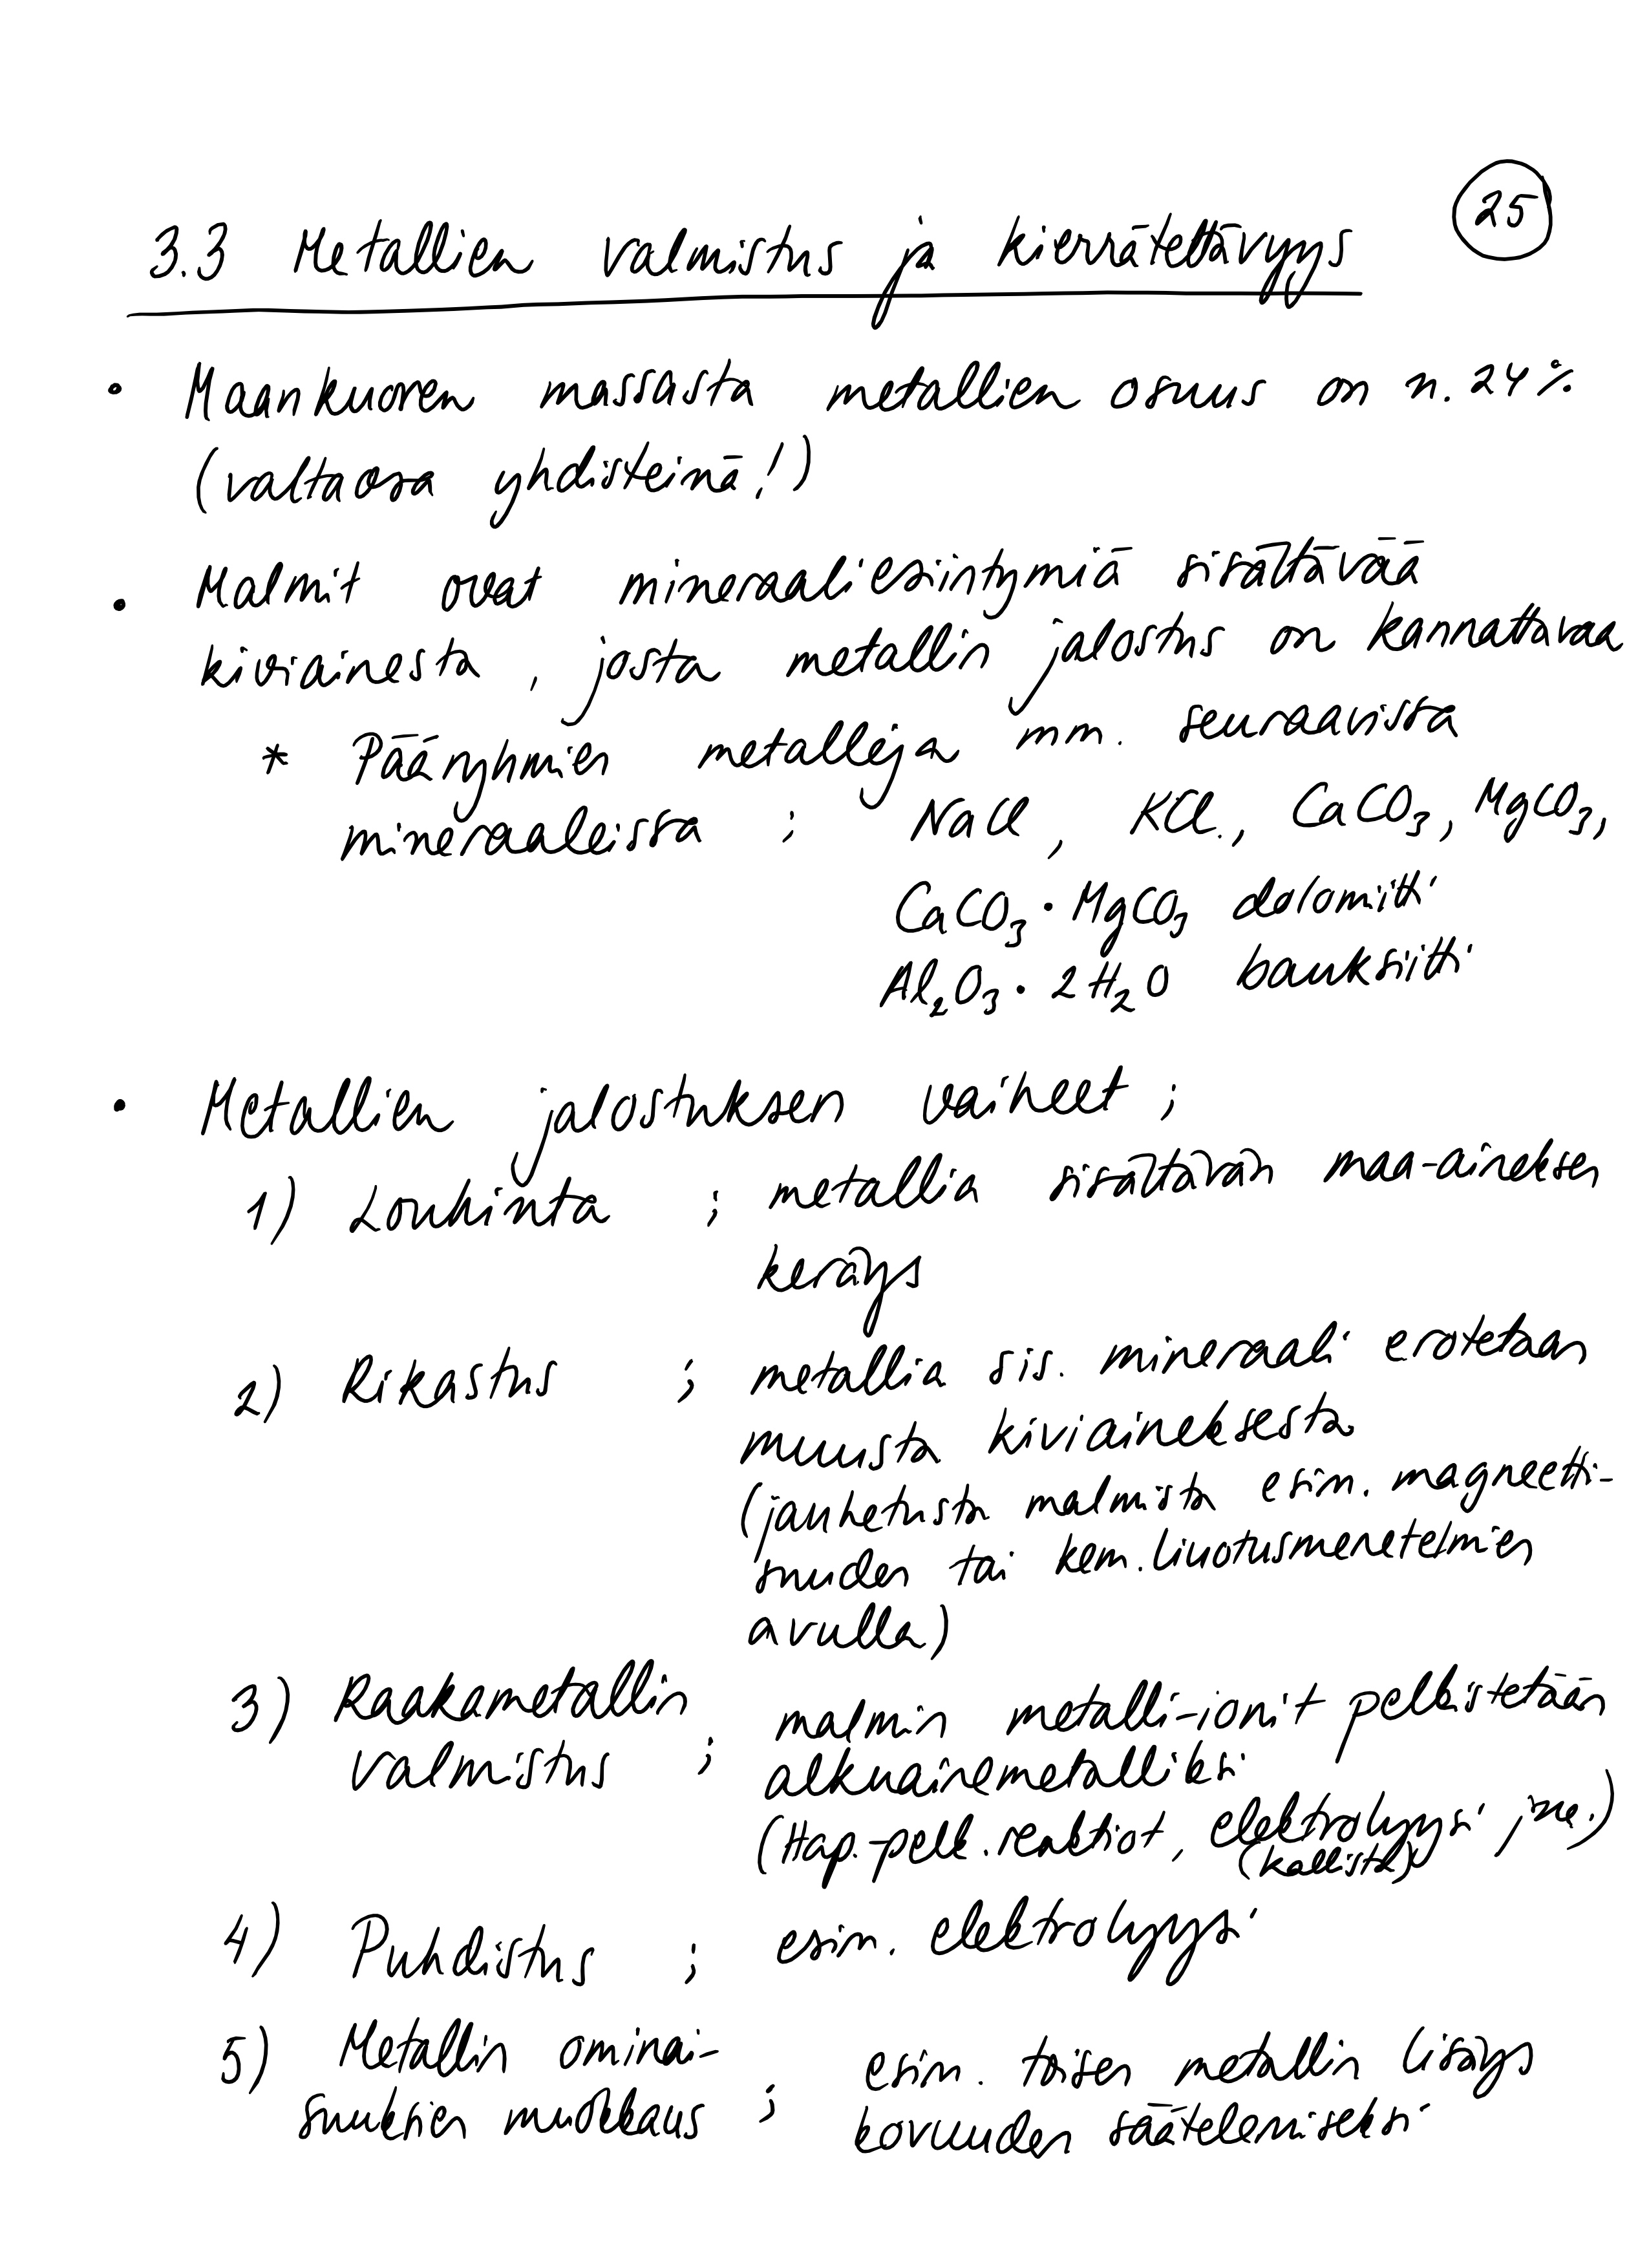 25
3.3 Metallien valmistus ja kierrätettävyys
• Maankuoren massasta metallien osuus on n. 24%
(valtaosa yhdisteinä!)
• Malmit ovat mineraaliesiintymiä sisältävää
kiviainesta, josta metallin jalostus on kannattavaa
* Pääryhmien metalleja mm. seuraavissa
mineraaleissa ; NaCl, KCl., CaCO₃, MgCO₃,
CaCO₃ · MgCO₃ dolomiitti
Al₂O₃ · 2H₂O bauksiitti
• Metallien jalostuksen vaiheet ;
1) Louhinta ; metallia sisältävän maa-aineksen
keräys
2) Rikastus ; metallia sis. mineraali erotetaan
muusta kiviaineksesta
(jauhetusta malmista esim. magneetti-
suuden tai kem. liuotusmenetelmien
avulla)
3) Raakametallin
valmistus ; malmin metalli-ionit pelkistetään
alkuainemetalliksi
(Hap.-pelk. reaktiot, elektrolyysi jne.)
(kallista)
4) Puhdistus ; esim. elektrolyysi
5) Metallin ominai-
suuksien muokkaus ; esim. toisen metallin lisäys
kovuuden säätelemiseksi